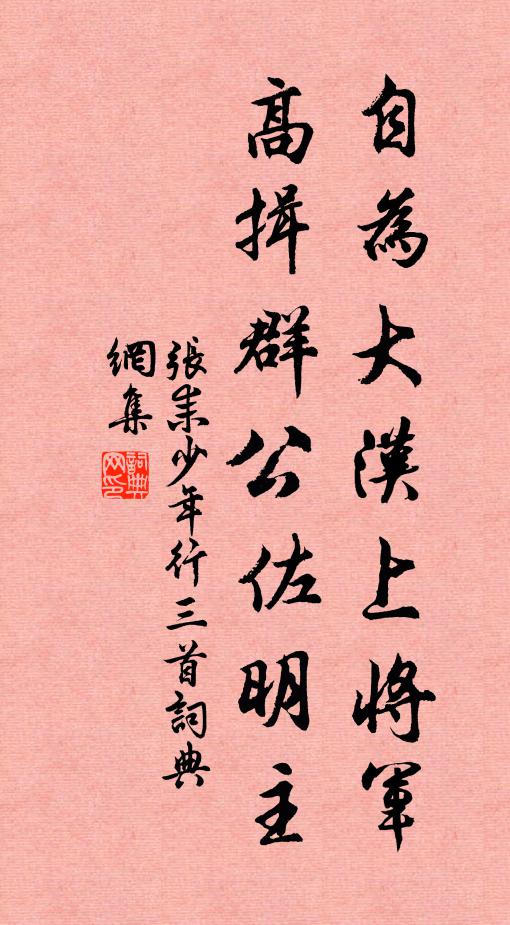 自為大漢上將軍
高揖群公佐明主
張耒少年行三首詞典
網集
詞典網印